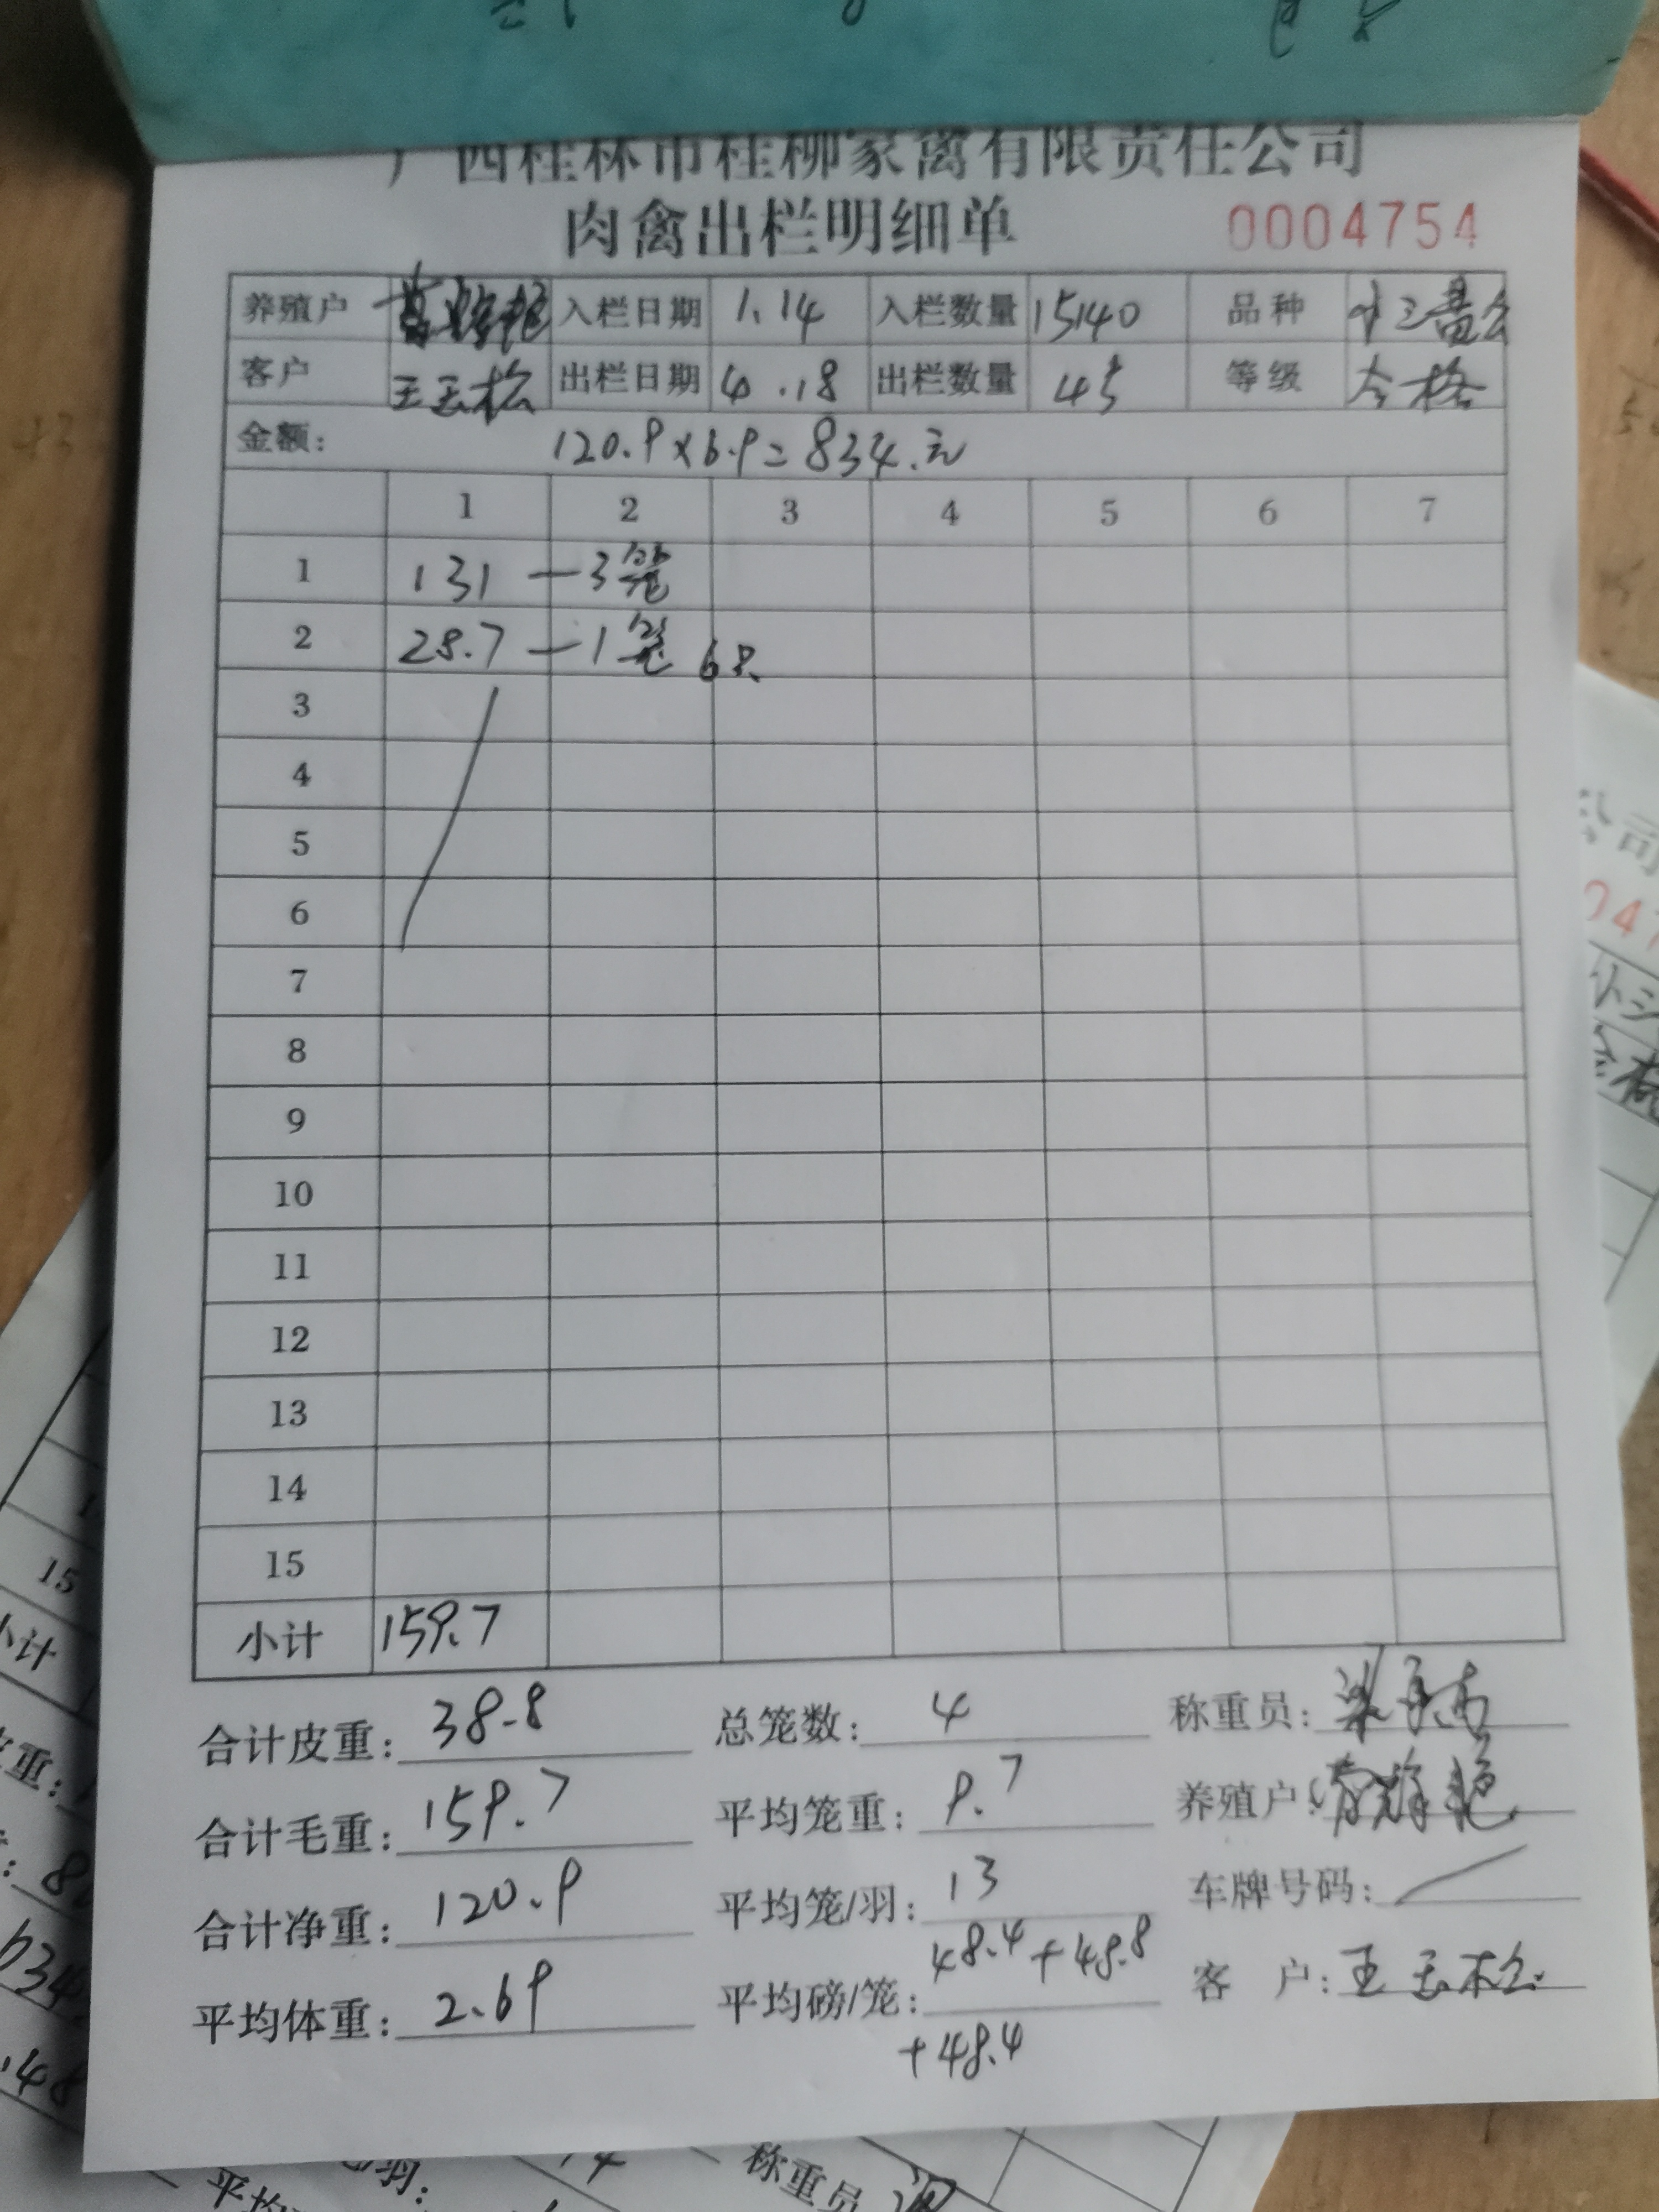 广西桂林市桂柳家禽有限责任公司
肉禽出栏明细单 0004754
养殖户 入栏日期 1.14 入栏数量 15140 品种
客户 王玉松 出栏日期 4.18 出栏数量 45 等级 合格
金额: 120.9×6.9=834.元
1 2 3 4 5 6 7
1 131 — 3笼
2 28.7 — 1笼 6只
3
4
5
6
7
8
9
10
11
12
13
14
15
小计 159.7
合计皮重: 38.8 总笼数: 4 称重员:
合计毛重: 159.7 平均笼重: 9.7 养殖户:
合计净重: 120.9 平均笼/羽: 13 车牌号码:
平均体重: 2.69 平均磅/笼: 48.4+48.8 客 户: 王玉松
+48.4
公司
047
15
小计
重:
平均
羽:
14
称重员